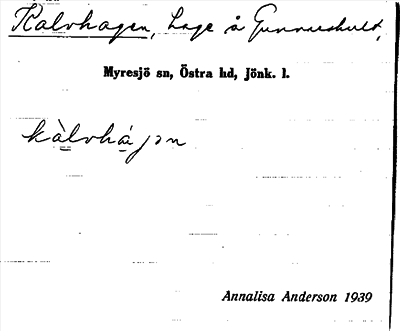 Kalvhagen, Lage å Gunnarshult,
Myresjö sn, Östra hd, Jönk. l.
kàlvhá̱gən
Annalisa Anderson 1939